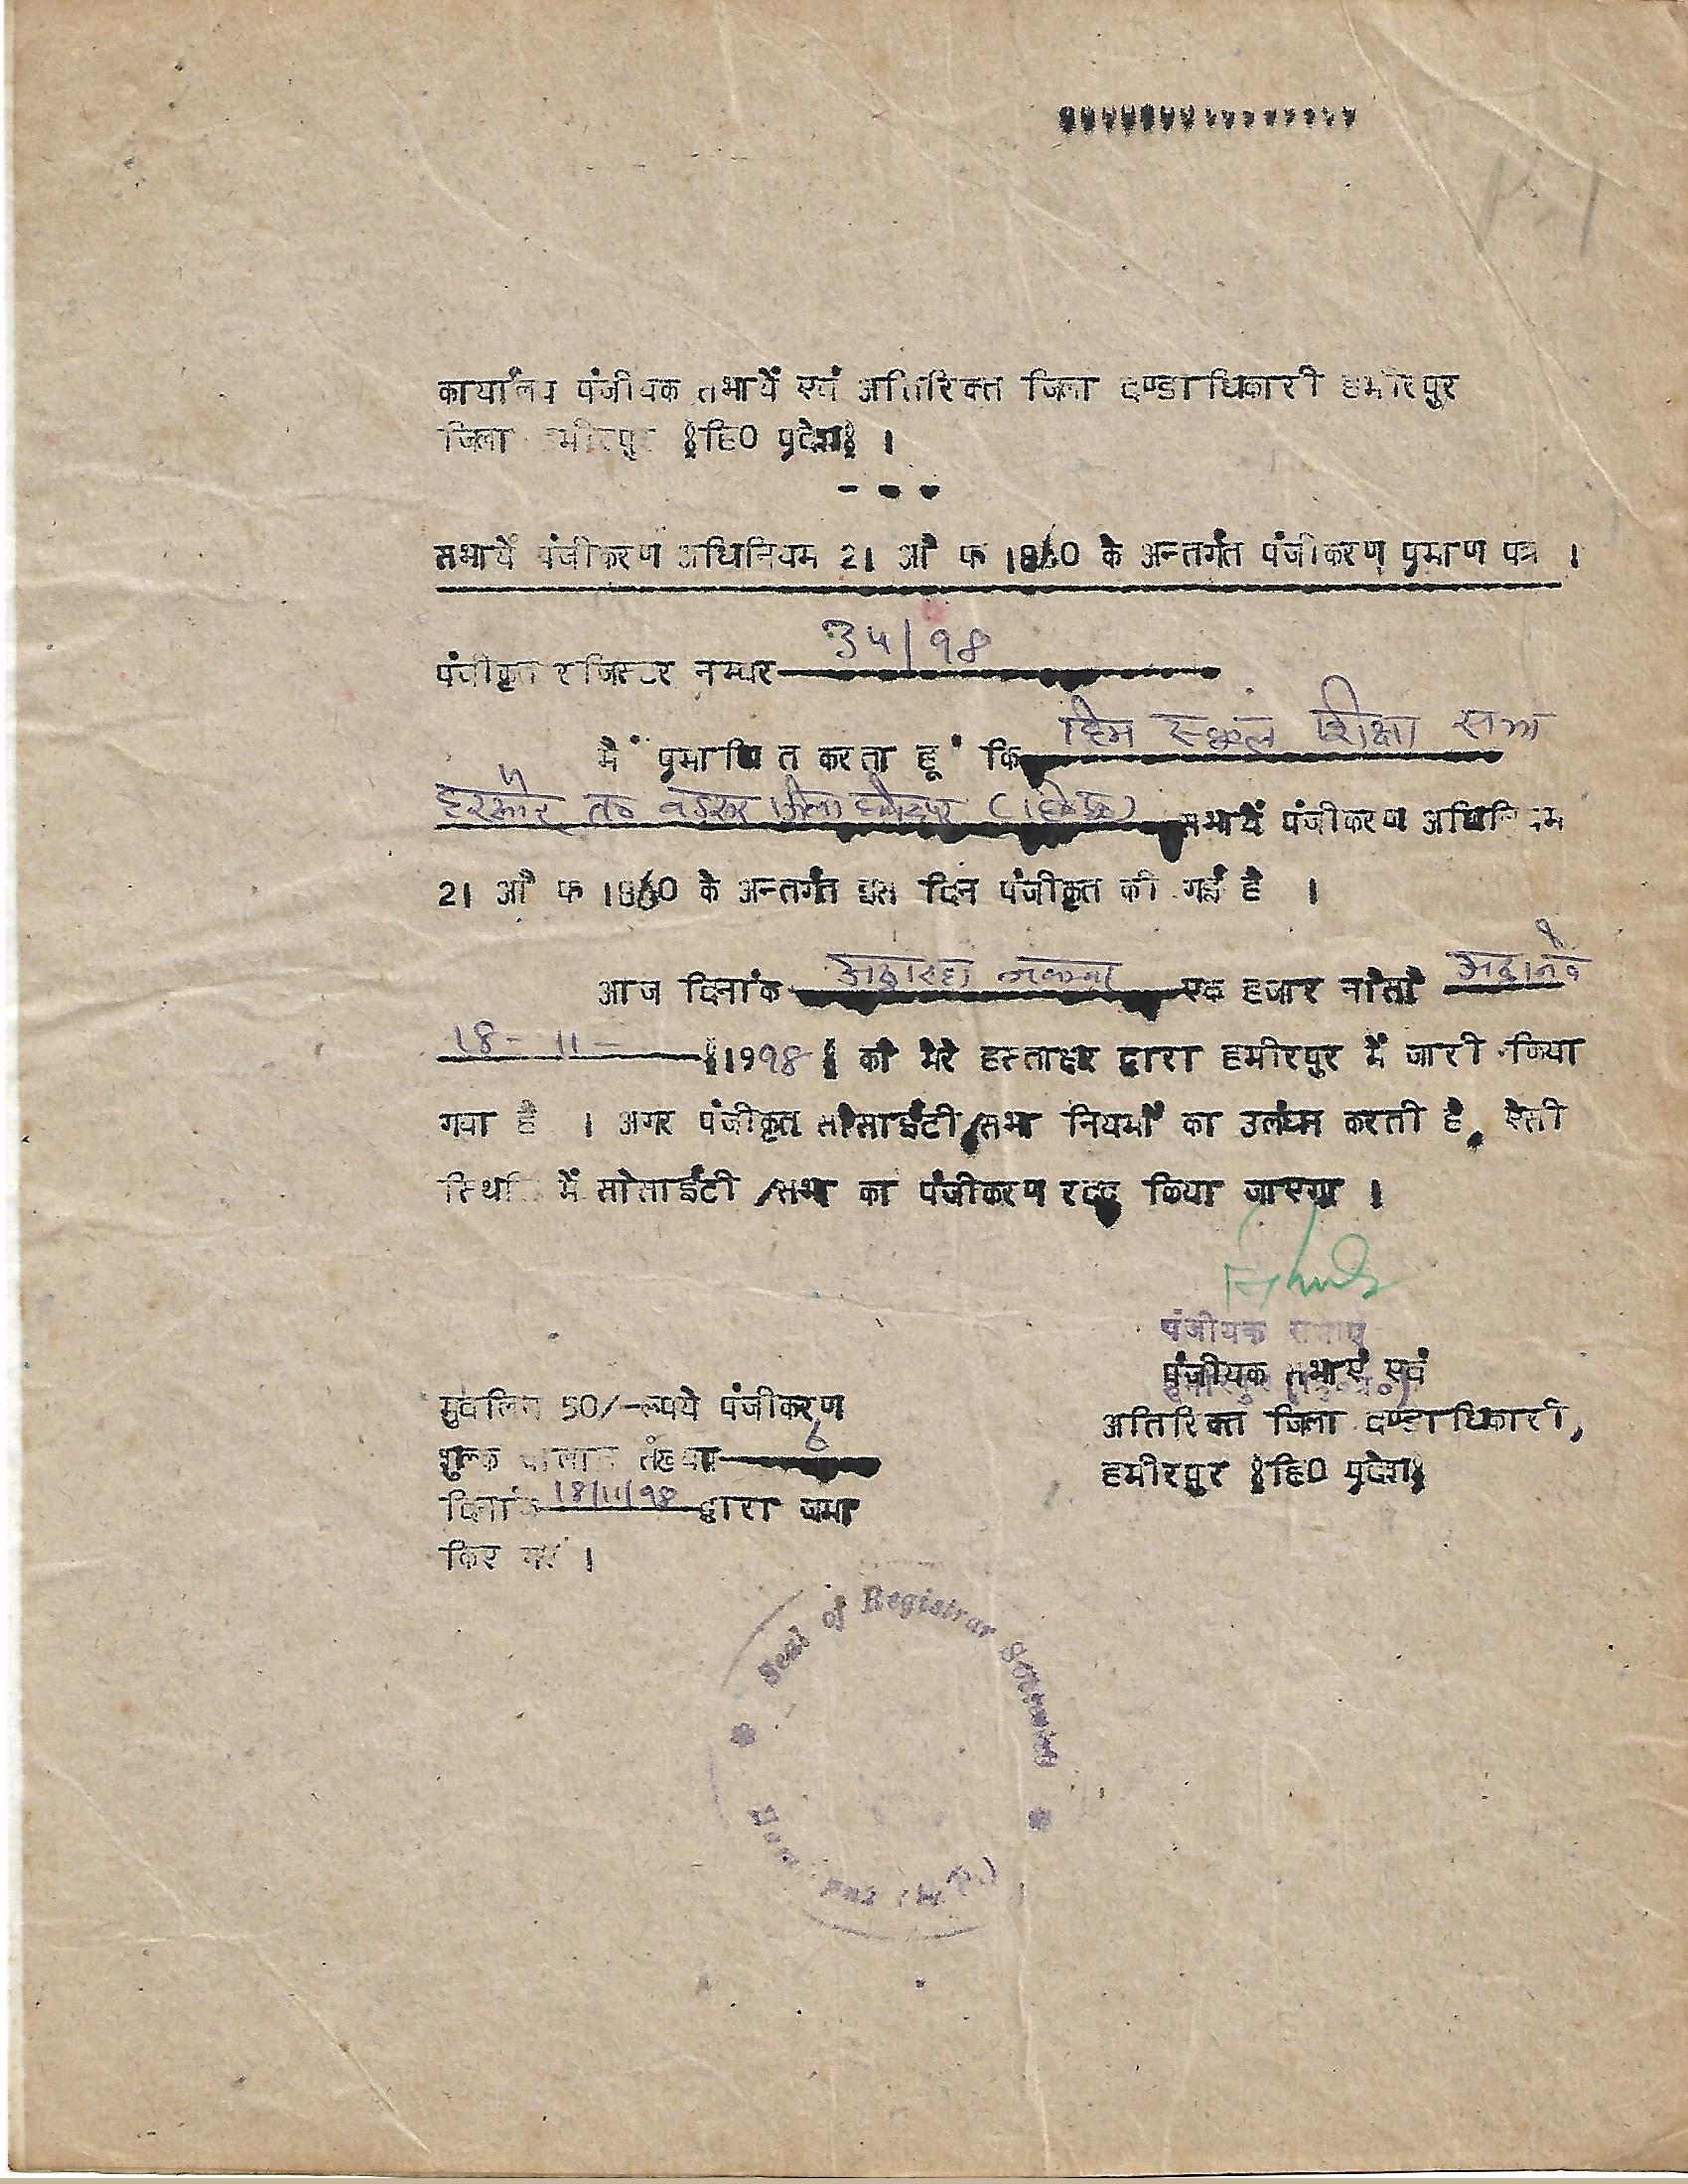 कार्यालय पंजीयक सभायें एवं अतिरिक्त जिला दण्डाधिकारी हमीरपुर
जिला हमीरपुर (हि0 प्रदेश) ।
- - -
सभायें पंजीकरण अधिनियम 21 ऑफ 1860 के अन्तर्गत पंजीकरण प्रमाण पत्र ।
पंजीकृत रजिस्टर नम्बर 34/98
मैं प्रमाणित करता हूं कि हिम स्कूल शिक्षा सभा
जिला हमीरपुर (हि0प्र0) सभायें पंजीकरण अधिनियम
21 ऑफ 1860 के अन्तर्गत इस दिन पंजीकृत की गई है ।
आज दिनांक अठारहा नवम्बर एक हजार नौ सौ अठानवें
18-11-(1998) को मेरे हस्ताक्षर द्वारा हमीरपुर में जारी किया
गया है । अगर पंजीकृत सोसाईटी/सभा नियमों का उलंघन करती है, ऐसी
स्थिति में सोसाईटी/सभा का पंजीकरण रदद किया जाएगा ।
पंजीयक सभाएं
पंजीयक सभाएं एवं
अतिरिक्त जिला दण्डाधिकारी,
हमीरपुर (हि0 प्रदेश)
मुबलिग 50/-रूपये पंजीकरण
शुल्क चालान संख्या 6
दिनांक 18/11/98 द्वारा जमा
किए गए ।
Seal of Registrar Societies
Hamirpur (H.P.)